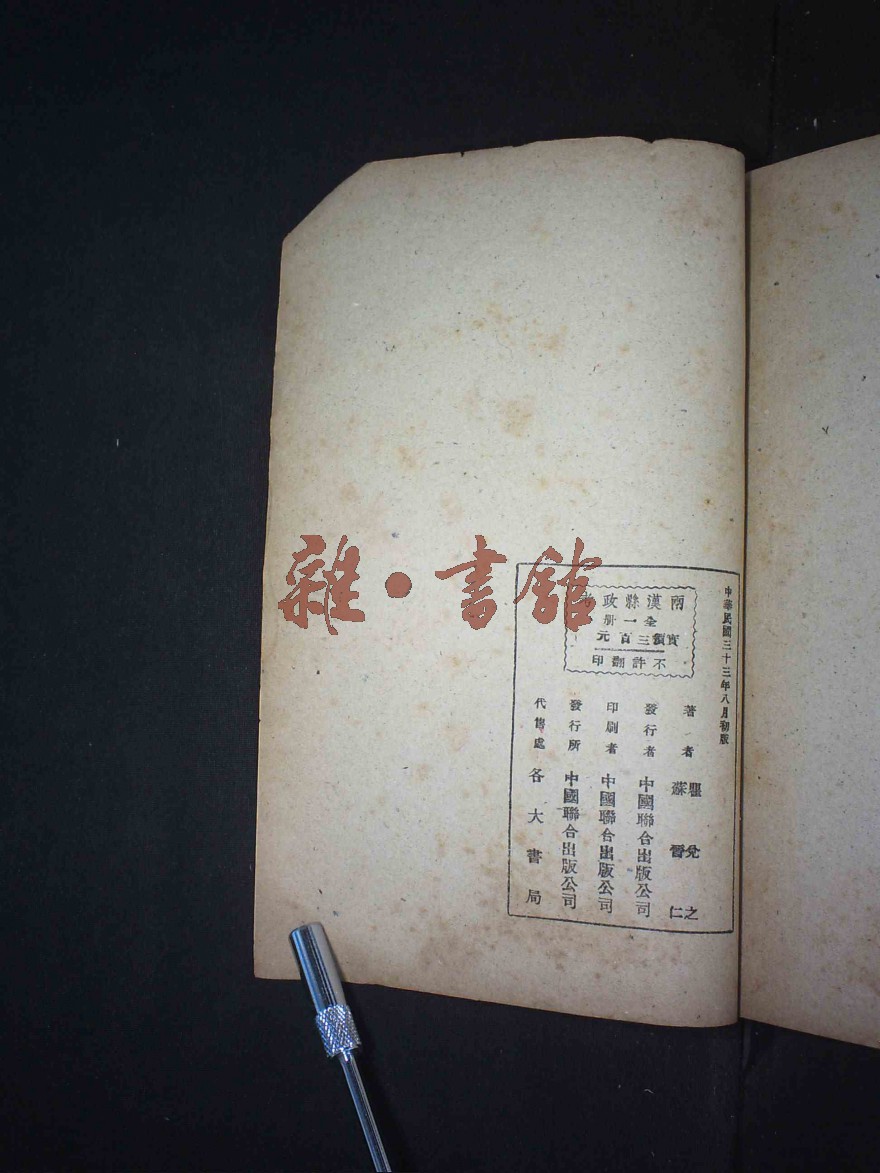 中華民國三十三年八月初版
兩漢縣政考
全一冊
實價三百元
不許翻印
著者 瞿兌之
蘇晉仁
發行者 中國聯合出版公司
印刷者 中國聯合出版公司
發行所 中國聯合出版公司
代售處 各大書局
雜·書館